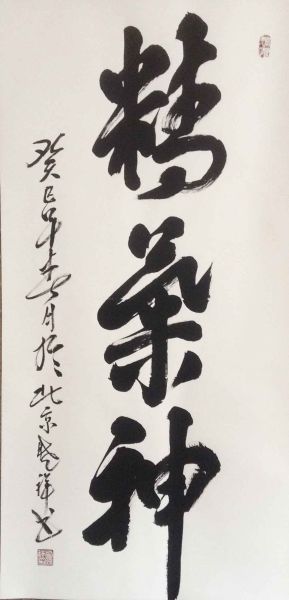 精氣神
癸巳年月於北京祥书